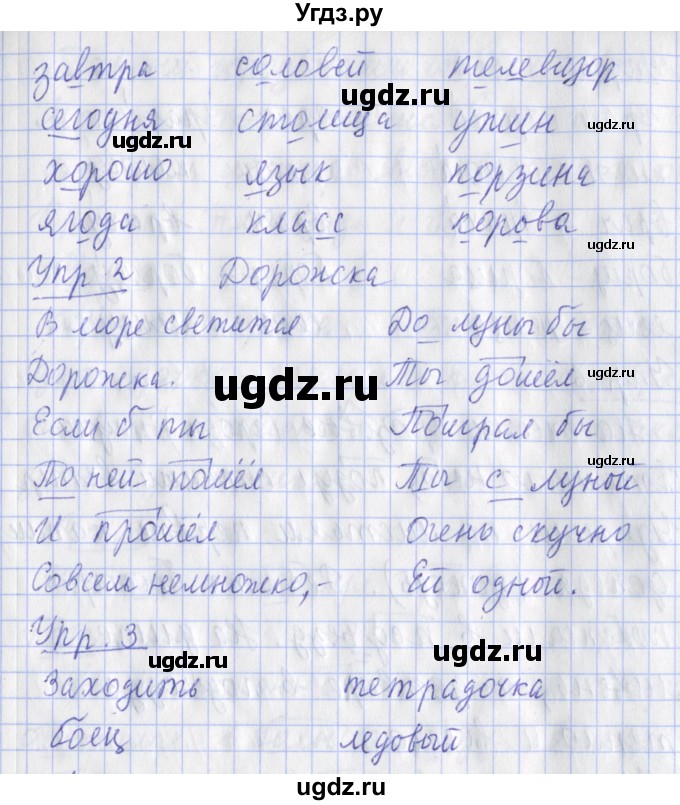 Угдз.ру
завтра соловей телевизор
сегодня столица ужин
хорошо язык корзина
ягода класс корова
Упр. 2 Дорожка
В море светится До луны бы
Дорожка. Ты дошёл
Если б ты Поиграл бы
По ней пошёл Ты с луной
И прошёл Очень скучно
Совсем немножко,– Ей одной.
Упр. 3
Заходить тетрадочка
боец ледовый
ugdz.ru
ugdz.ru
ugdz.ru
ugdz.ru
ugdz.ru
ugdz.ru
ugdz.ru
ugdz.ru
ugdz.ru
ugdz.ru
ugdz.ru
ugdz.ru